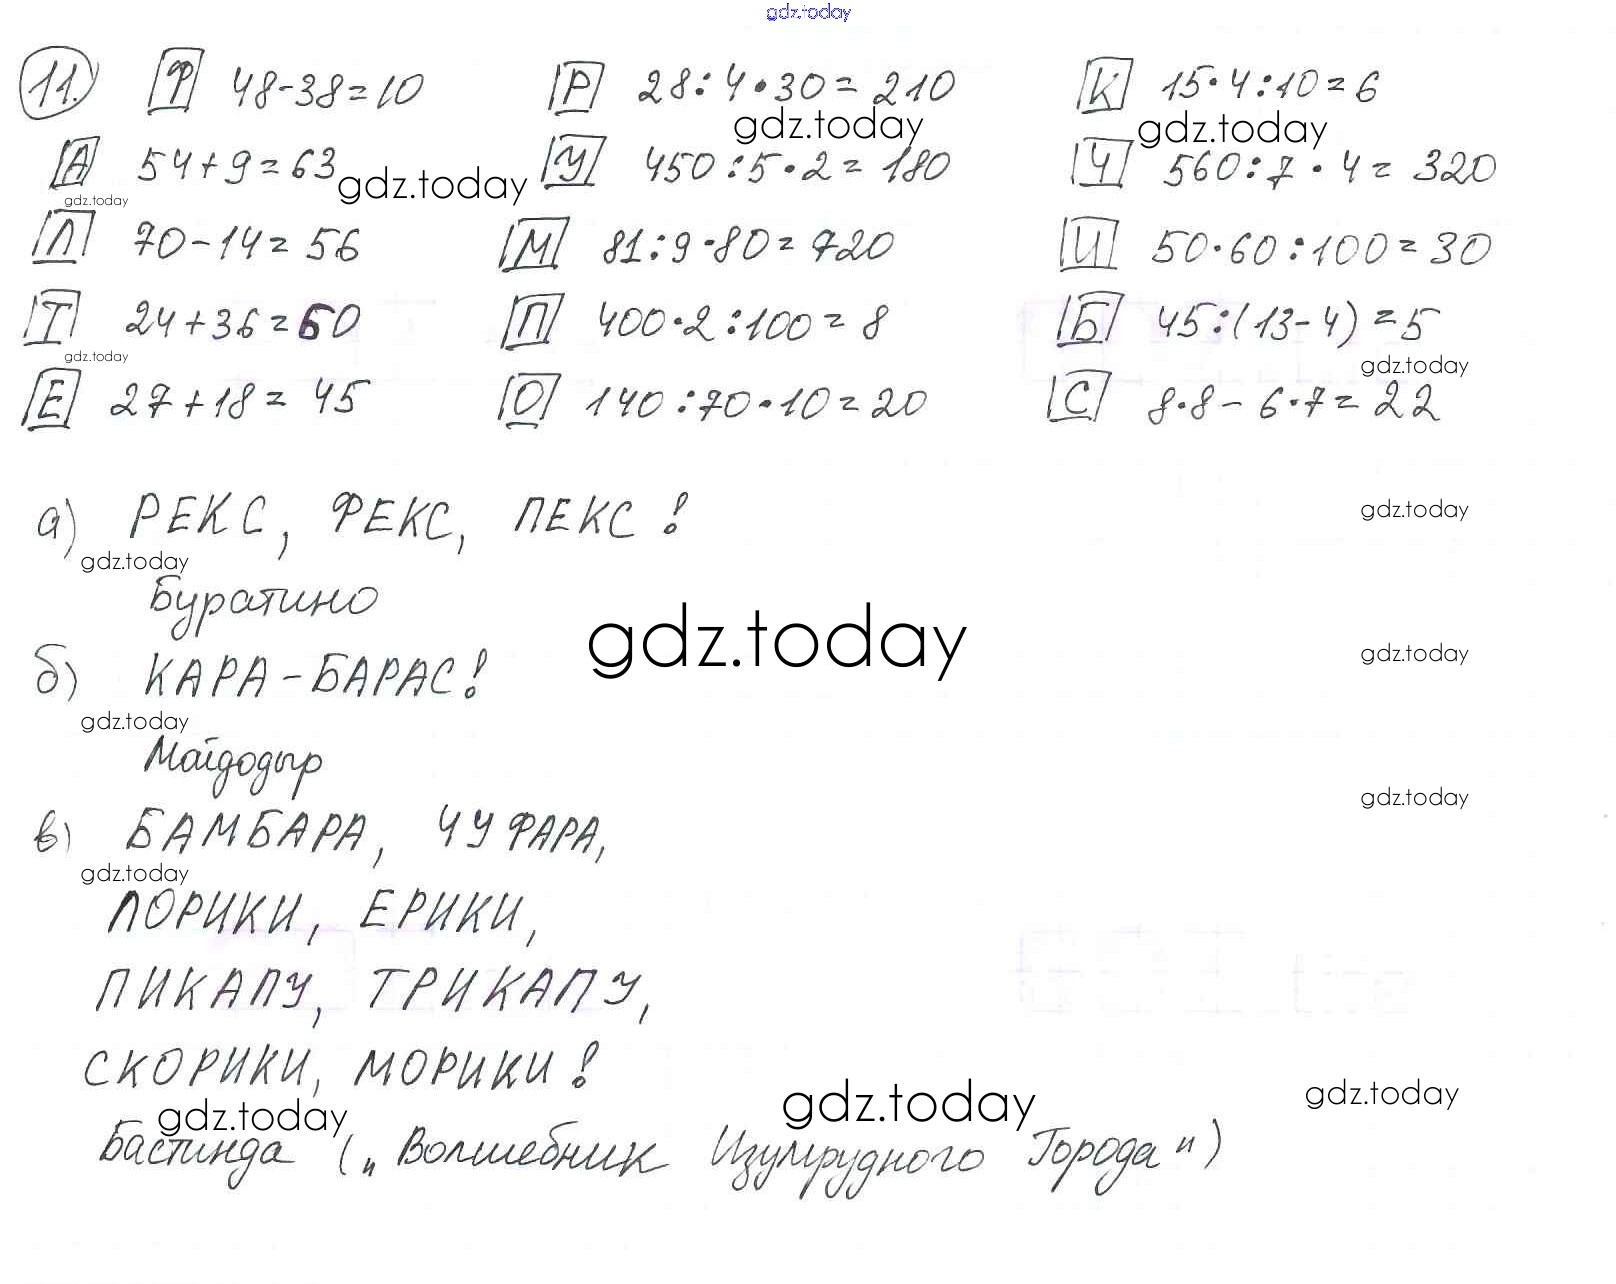 gdz.today
11. Ф 48-38=10 Р 28:4·30=210 К 15·4:10=6
gdz.today gdz.today
А 54+9=63 У 450:5·2=180 Ч 560:7·4=320
gdz.today gdz.today
Л 70-14=56 М 81:9·80=720 И 50·60:100=30
Т 24+36=60 П 400·2:100=8 Б 45:(13-4)=5
gdz.today gdz.today
Е 27+18=45 О 140:70·10=20 С 8·8-6·7=22
а) РЕКС, ФЕКС, ПЕКС! gdz.today
gdz.today
Буратино
gdz.today
б) КАРА-БАРАС! gdz.today
gdz.today
Мойдодыр
gdz.today
в) БАМБАРА, ЧУФАРА,
gdz.today
ЛОРИКИ, ЕРИКИ,
ПИКАПУ, ТРИКАПУ,
СКОРИКИ, МОРИКИ!
gdz.today gdz.today gdz.today
Бастинда („Волшебник Изумрудного Города")